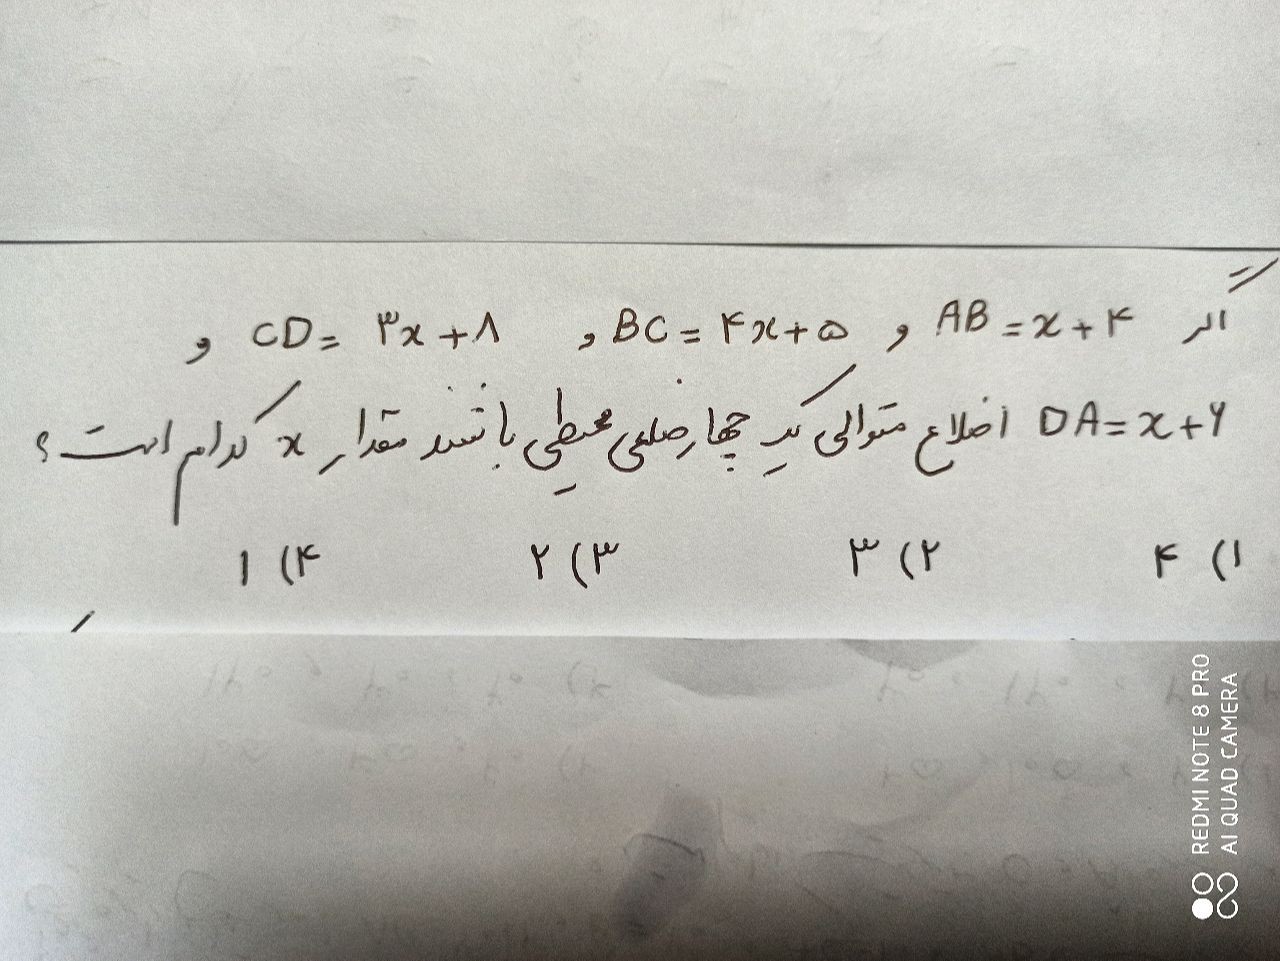 اگر AB = x + ۴ و BC = ۴x + ۵ و CD = ۳x + ۸ و
DA = x + ۶ اضلاع متوالی یک چهارضلعی محیطی باشند مقدار x کدام است؟
۱) ۴ ۲) ۳ ۳) ۲ ۴) ۱
REDMI NOTE 8 PRO
AI QUAD CAMERA